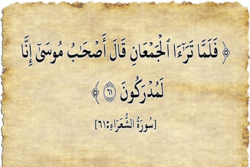 ﴿ فَلَمَّا تَرَٰٓءَا ٱلۡجَمۡعَانِ قَالَ أَصۡحَٰبُ مُوسَىٰٓ إِنَّا
لَمُدۡرَكُونَ ٦١ ﴾
[سُورَةُ الشُّعَرَاءِ:٦١]